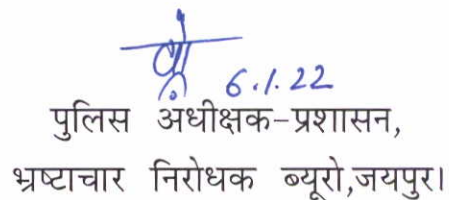 6.1.22
पुलिस अधीक्षक-प्रशासन,
भ्रष्टाचार निरोधक ब्यूरो,जयपुर।